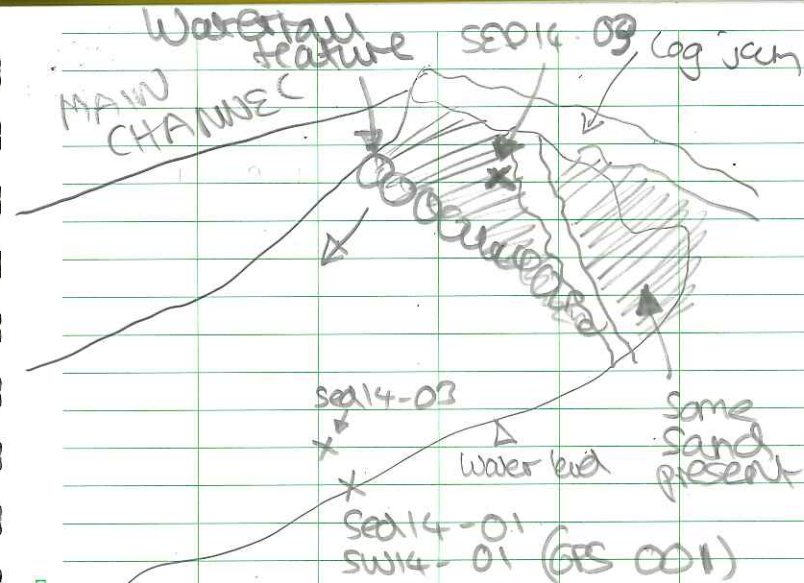 Waterfall
feature
SED14-03
log jam
MAIN
CHANNEL
sed14-03
water level
Some
Sand
present
Sed14-01
SW14-01 (GPS 001)